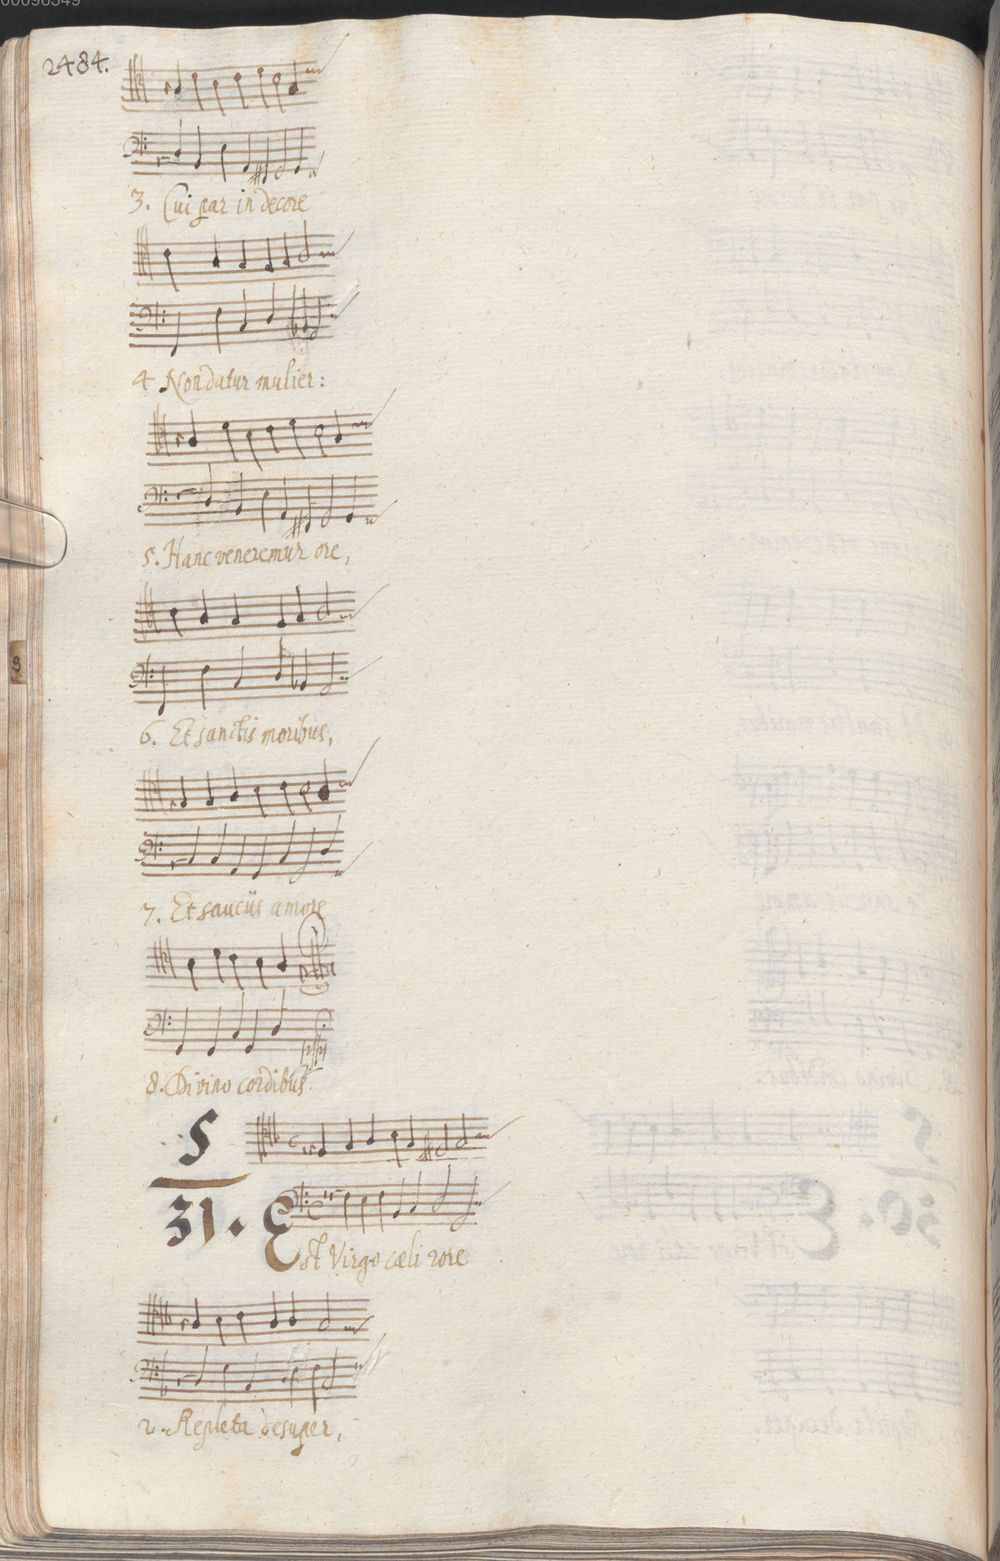 00098349
2484.
3. Cui par in decore
4 Non datur mulier:
5. Hanc veneremur ore,
6. Et sanctis moribus,
7. Et sauciis amore
8. Divino cordibus.
5
31. Est Virgo cæli rore
2. Repleta desuper,